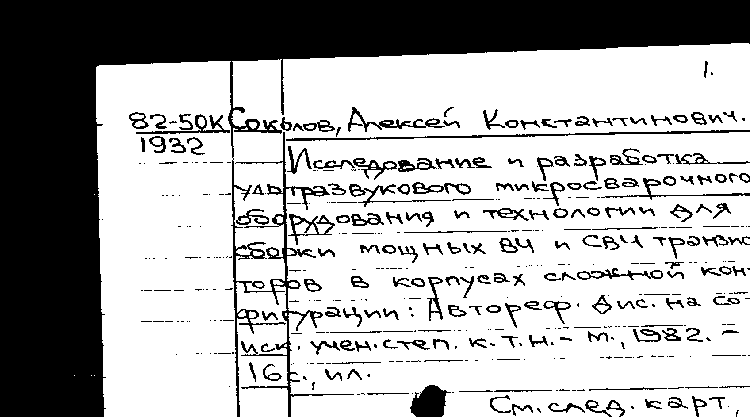 1.
82-50К Соколов, Алексей Константинович.
1932
Исследование и разработка
ультразвукового микросварочного
оборудования и технологии для
сборки мощных ВЧ и СВЧ транзис
торов в корпусах сложной кон-
фигурации: Автореф. дис. на со-
иск. учен. степ. к.т.н. - М., 1982. -
16 с., ил.
См. след. карт.